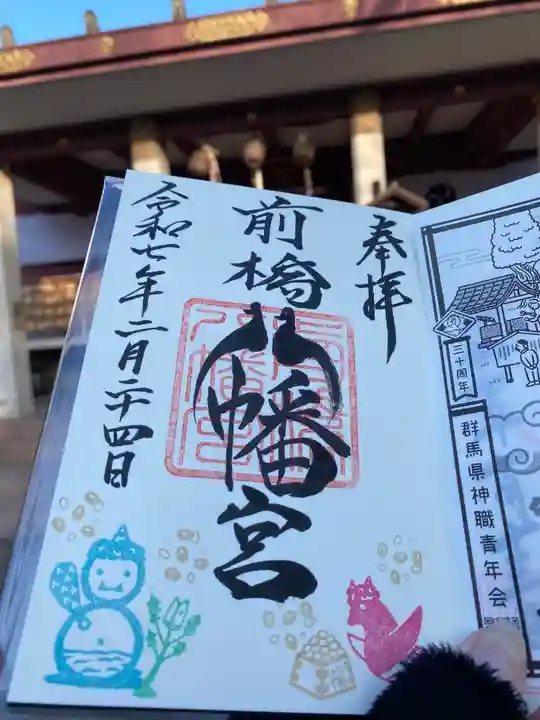 奉拝
前橋八幡宮
令和七年二月二十四日
三十周年
群馬県神職青年会